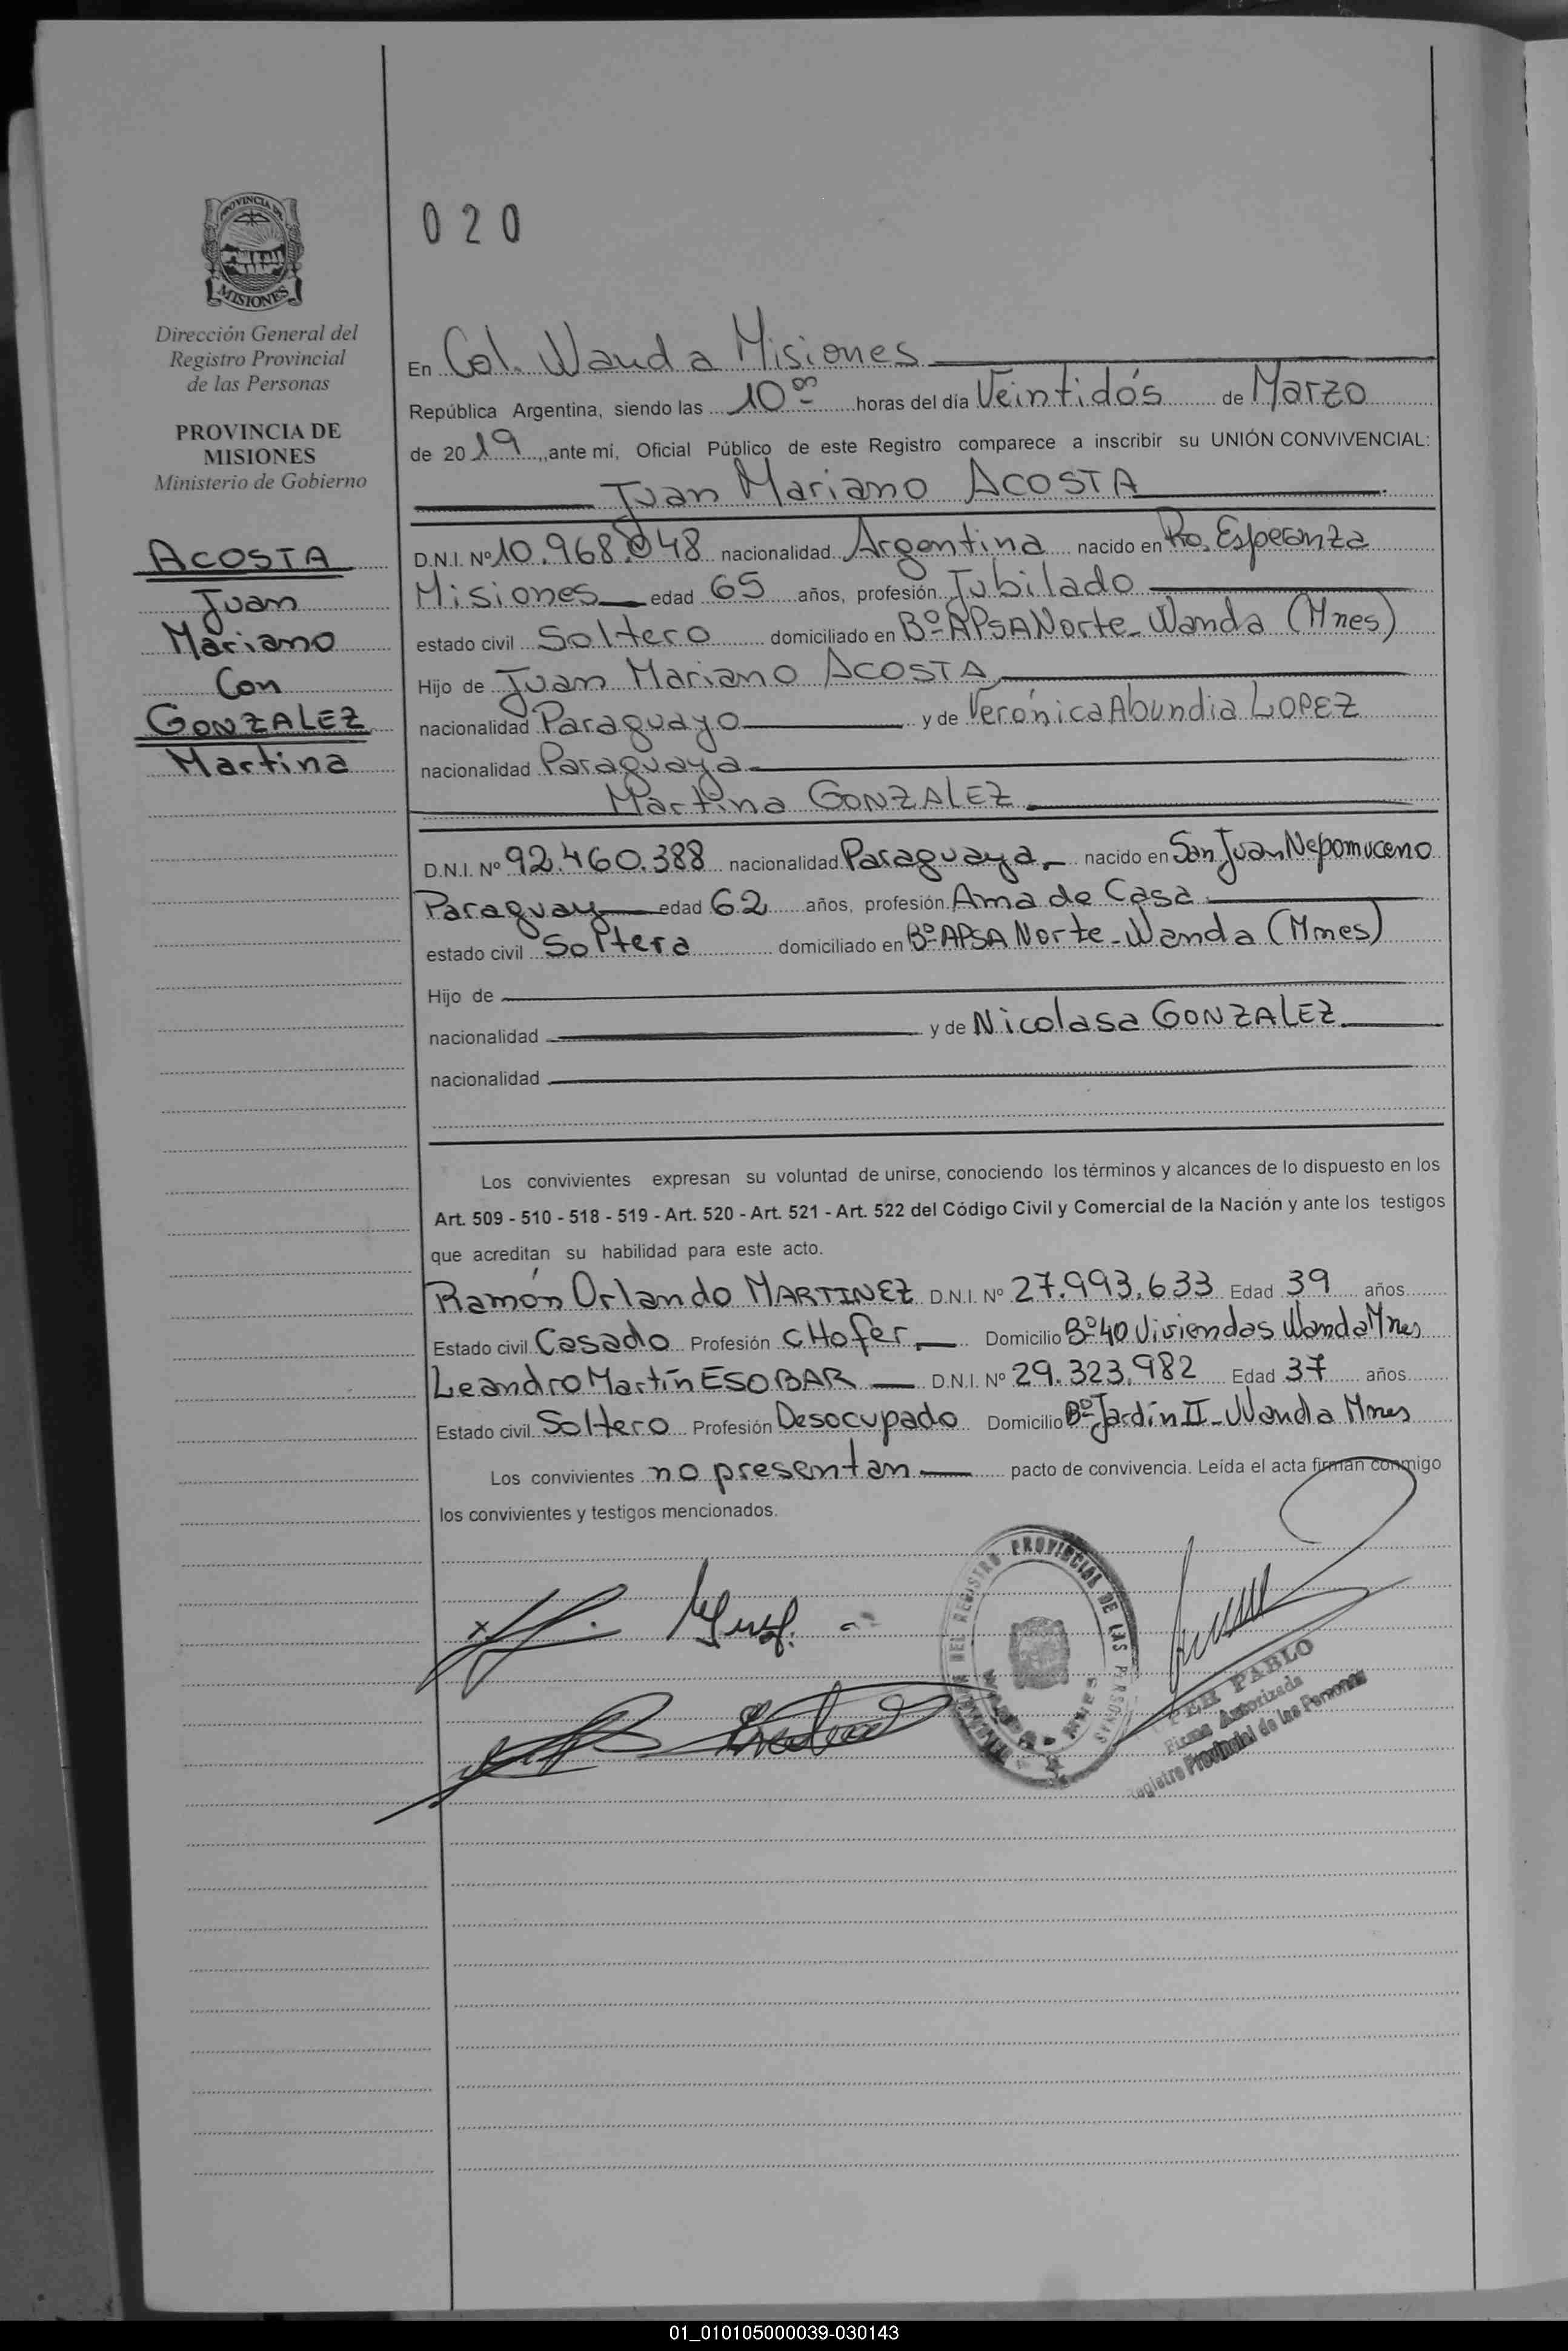 020
PROVINCIA DE
MISIONES
Dirección General del
Registro Provincial
de las Personas
PROVINCIA DE
MISIONES
Ministerio de Gobierno
ACOSTA
Juan
Mariano
Con
GONZALEZ
Martina
En Col. Wanda Misiones
República Argentina, siendo las 10 00 horas del día Veintidós de Marzo
de 2019, ante mí, Oficial Público de este Registro comparece a inscribir su UNIÓN CONVIVENCIAL:
Juan Mariano ACOSTA
D.N.I. Nº 10.968.048 nacionalidad Argentina nacido en Pto. Esperanza
Misiones edad 65 años, profesión Jubilado
estado civil Soltero domiciliado en Bº APSA Norte - Wanda (Mnes)
Hijo de Juan Mariano ACOSTA
nacionalidad Paraguayo y de Verónica Abundia LOPEZ
nacionalidad Paraguaya
Martina GONZALEZ
D.N.I. Nº 92.460.388 nacionalidad Paraguaya nacido en San Juan Nepomuceno
Paraguay edad 62 años, profesión Ama de Casa
estado civil Soltera domiciliado en Bº APSA Norte - Wanda (Mnes)
Hijo de
nacionalidad y de Nicolasa GONZALEZ
nacionalidad
Los convivientes expresan su voluntad de unirse, conociendo los términos y alcances de lo dispuesto en los
Art. 509 - 510 - 518 - 519 - Art. 520 - Art. 521 - Art. 522 del Código Civil y Comercial de la Nación y ante los testigos
que acreditan su habilidad para este acto.
Ramón Orlando MARTINEZ D.N.I. Nº 27.993.633 Edad 39 años
Estado civil Casado Profesión CHofer Domicilio Bº 40 Viviendas Wanda Mnes
Leandro Martín ESOBAR D.N.I. Nº 29.323.982 Edad 37 años
Estado civil Soltero Profesión Desocupado Domicilio Bº Jardín II - Wanda Mnes
Los convivientes no presentan pacto de convivencia. Leída el acta firman conmigo
los convivientes y testigos mencionados.
DEL REGISTRO PROVINCIAL DE LAS PERSONAS
WANDA - MNES
PABLO
Firma Autorizada
Registro Provincial de las Personas
01_010105000039-030143